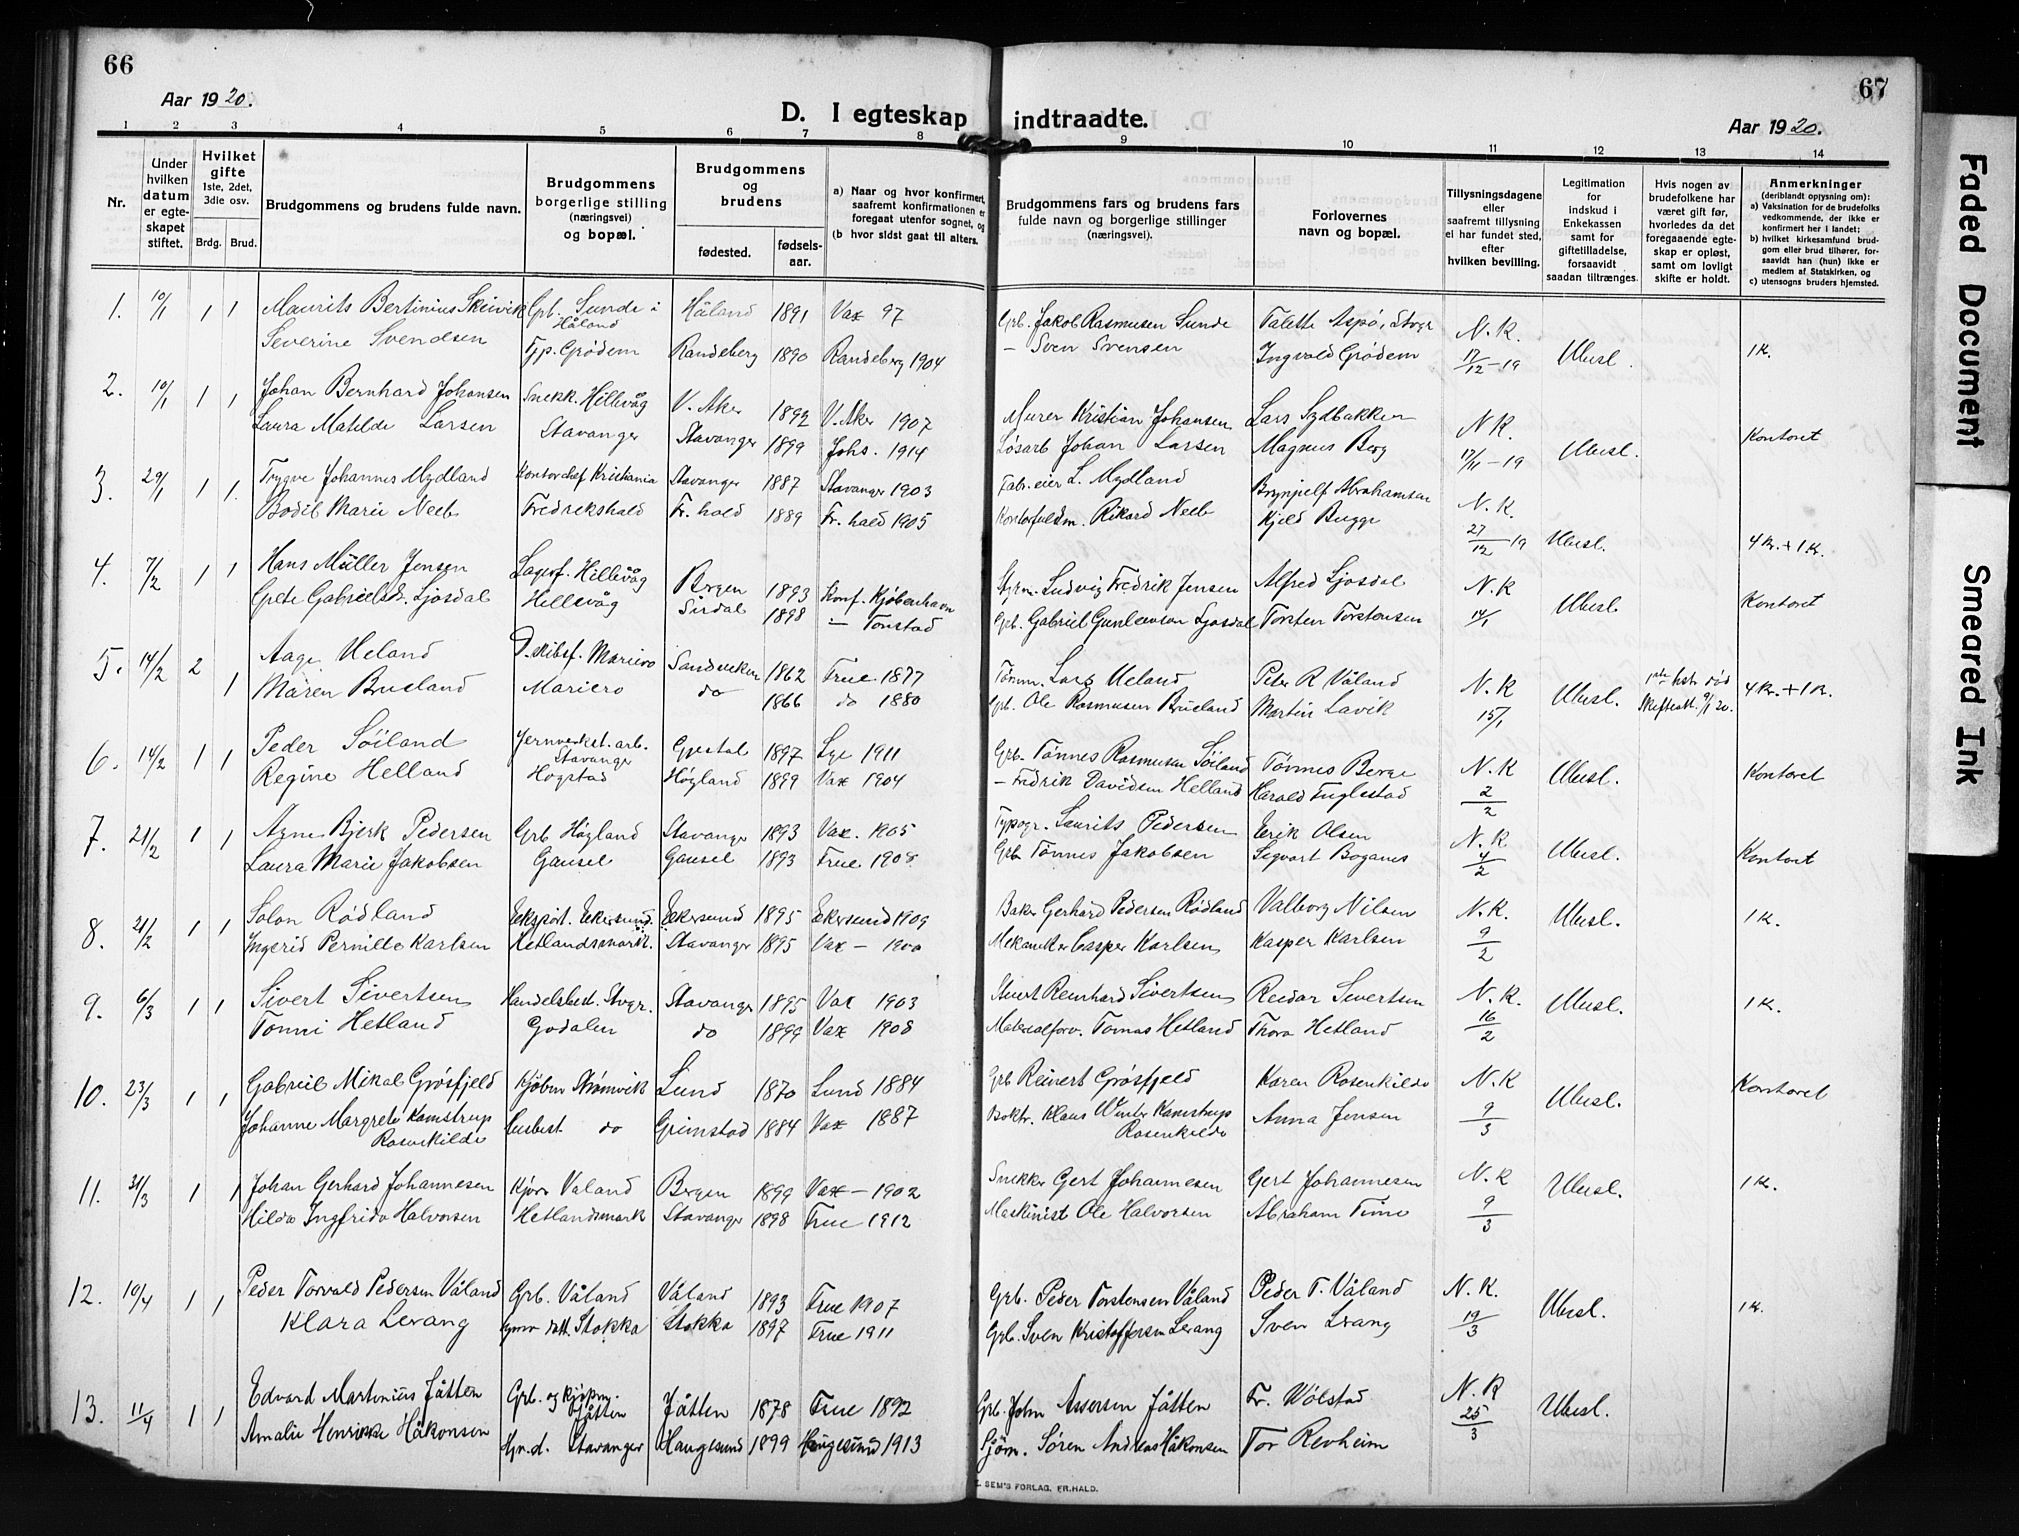 66
67
Aar 1920.
D. I egteskap indtraadte.
Aar 1920.
1 2 3 4 5 6 7 8 9 10 11 12 13 14
Nr.
Under hvilken datum er egteskapet stiftet.
Hvilket gifte 1ste, 2det, 3die osv.
Brdg. Brud.
Brudgommens og brudens fulde navn.
Brudgommens borgerlige stilling (næringsvei) og bopæl.
Brudgommens og brudens
fødested.
fødselsaar.
a) Naar og hvor konfirmert, saafremt konfirmationen er foregaat utenfor sognet, og
(b hvor sidst gaat til alters.
Brudgommens fars og brudens fars fulde navn og borgerlige stillinger (næringsvei).
Forlovernes navn og bopæl.
Tillysningsdagene eller saafremt tillysning ei har fundet sted, efter hvilken bevilling.
Legitimation for indskud i Enkekassen samt for giftetilladelse, forsaavidt saadan tiltrænges.
Hvis nogen av brudefolkene har været gift før, hvorledes da det foregaaende egteskap er opløst, samt om lovligt skifte er holdt.
Anmerkninger (deriblandt opysning om):
a) Vaksination for de brudefolks vedkommende, der ikke er konfirmert her i landet;
b) hvilket kirkesamfund brudgom eller brud tilhører, forsaavidt han (hun) ikke er medlem af Statskirken, og
c) utensogns bruders hjemsted.
1. 10/1 1 1 Maurits Bertinius Skeivik Grb. Sunde i Håland Håland 1891 Vax 97 Grb. Jakob Rasmusen Sunde Talette Aspø, Stvgr N. K.
Severine Svendsen Tjp. Grødem Randeberg 1890 Randeberg 1904 – Sven Svensen Ingvald Grødem 17/12-19 Ubesl. 1 K.
2. 10/1 1 1 Johan Bernhard Johansen Snekk. Hillevåg V. Aker 1892 V. Aker 1907 Murer Kristian Johansen Lars Sydbakken N. K.
Laura Matilde Larsen Stavanger Stavanger 1899 Johs. 1914 Løsarb Johan Larsen Magnus Berg 17/11-19 Ubesl. Kontoret
3. 29/1 1 1. Trygve Johannes Mydland Kontorchef Kristiania Stavanger 1887 Stavanger 1903 Fabr. eier L. Mydland Brynjulf Abrahamsen N. K.
Bodil Marie Neeb Fredrikshald Fr. hald 1889 Fr. hald 1905 Kontorfuldm. Rikard Neeb Kjeld Bugge 27/12 19 Ubesl. 4 Kr. + 1 K.
4. 7/2 1 1 Hans Müller Jensen Lagerf. Hillevåg Bergen 1893 Konf. Kjøbenhavn Styrm. Ludvig Fredrik Jensen Alfred Ljosdal N. K
Grete Gabrielsd. Ljosdal Hillevåg Sirdal 1898 – Tonstad Grb. Gabriel Gunlevson Ljosdal Torsten Torstensen 14/1 Ubesl. Kontoret
5. 14/2 2 Aage Ueland D. skibsf. Mariero Sandviken 1862 Frue 1877 Tømm. Lars Ueland Peter R Våland N. K
1 Maren Brueland Mariero do 1866 do 1880 Grb. Ole Rasmusen Brueland Martin Lavik 15/1 Ubesl. 1ste hst. død Skifteatt. 9/1 20. 4 Kr. + 1 K.
6. 14/2 1 1 Peder Søiland Jernverket. arb. Stavanger Gjestal 1897 Lye 1911 Grb. Tönnes Rasmusen Söiland Tönnes Berge N. K
Regine Helland Hogstad Högland 1899 Vax 1904 – Fredrik Davidsen Helland Harald Fuglestad 2/2 Ubesl. Kontoret
7. 21/2 1 1 Agne Bjerk Pedersen Grb Högland Stavanger 1893 Vax. 1905 Typogr. Laurits Pedersen Eerik Olsen N. K
Laura Marie Jakobsen Gausel Gausel 1893 Frue 1908 Grb Tönnes Jakobsen Segvart Boganes 4/2 Ubesl. Kontoret
8. 21/2 1 1 Solon Rødland Ekspört. Ekersund. Ekersund 1895 Ekersund 1909 Baker Gerhard Pedersen Rødland Valborg Nilsen N. K.
Ingerid Pernille Karlsen Hetlandsmark. Stavanger 1895 Vax – 1900 Mekaniker Casper Karlsen Kasper Karlsen 9/2 Ubesl. 1 K.
9. 6/3 1 1 Sivert Sivertsen Handelsbest. Stvgr. Stavanger 1895 Vax 1903 Reinhard Sivertsen Reidar Severtsen N. K.
Tonni Hetland Godalen do 1899 Vax 1908 Materialforv. Tomas Hetland Thora Hetland 16/2 Ubesl. 1 K.
10. 23/3 1 1 Gabriel Mikal Grösfjeld Kjöbm Strömvik Lund 1870 Lund 1884 Grb Reinert Grösfjeld Karen Rosenkilde N. K
Johanne Margrete Kamstrup Rosenkilde Husbest do Grimstad 1884 Vax 1887 Boktr. Klaus Winter Kamstrup Rosenkilde Anna Jensen 9/3 Ubesl. Kontoret
11. 31/3 1 1 Johan Gerhard Johannesen Kjörer Våland Bergen 1899 Vax – 1902 Snekker Gert Johannesen Gert Johannesen N. K
Hilda Ingfrida Halvorsen Hetlandsmark Stavanger 1898 Frue 1912 Maskinist Ole Halvorsen Abraham Time 9/3 Ubesl. 1 K.
12. 10/4 1 1 Peder Torvald Pedersen Våland Grb. Våland Våland 1893 Frue 1907 Grb. Peder Torstensen Våland Peder T. Våland N. K.
Klara Lerang datt. Stokka Stokka 1897 Frue 1911 Grb. Sven Kristoffersen Lerang Sven Lerang 19/3 Ubesl. 1 K.
13. 11/4 1 1 Edvard Martinius Jåtten Grb. og kjöpm. Jåtten Jåtten 1878 Frue 1892 Grb. John Assersen Jåtten Fr. Wölstad N. K
Amalie Henrikke Håkonsen Hjv. d. Stavanger Haugesund 1899 Haugesund 1913 Sjöm. Sören Andreas Håkonsen Tor Revheim 25/3 Ubesl.
SEM'S FORLAG, FR.HALD.
Faded Document
Smeared Ink